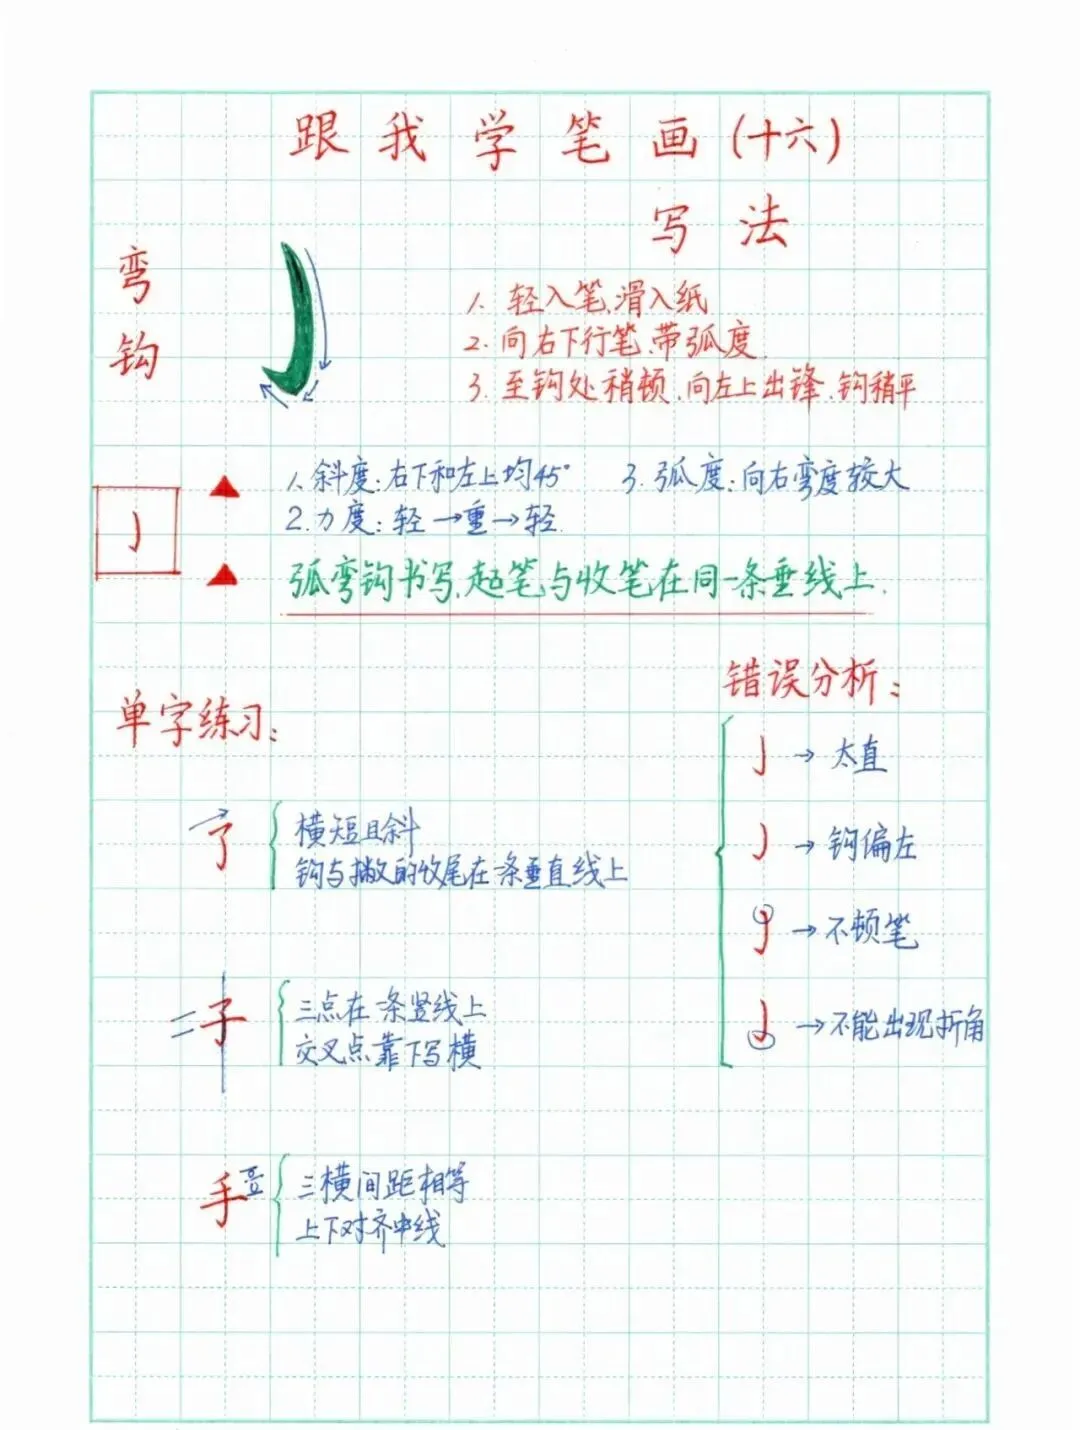 跟我学笔画(十六)
写法
弯钩
1. 轻入笔、滑入纸
2. 向右下行笔、带弧度.
3. 至钩处稍顿、向左上出锋、钩稍平
1. 斜度:右下和左上均45°
3. 弧度:向右弯度较大
2. 力度:轻→重→轻.
弧弯钩书写、起笔与收笔在同一条垂线上.
错误分析:
单字练习:
→太直
了
横短且斜
钩与撇的收尾在一条垂直线上
→钩偏左
→不顿笔
子
三点在一条竖线上
交叉点靠下写横
→不能出现折角
手
三横间距相等
上下对齐中线